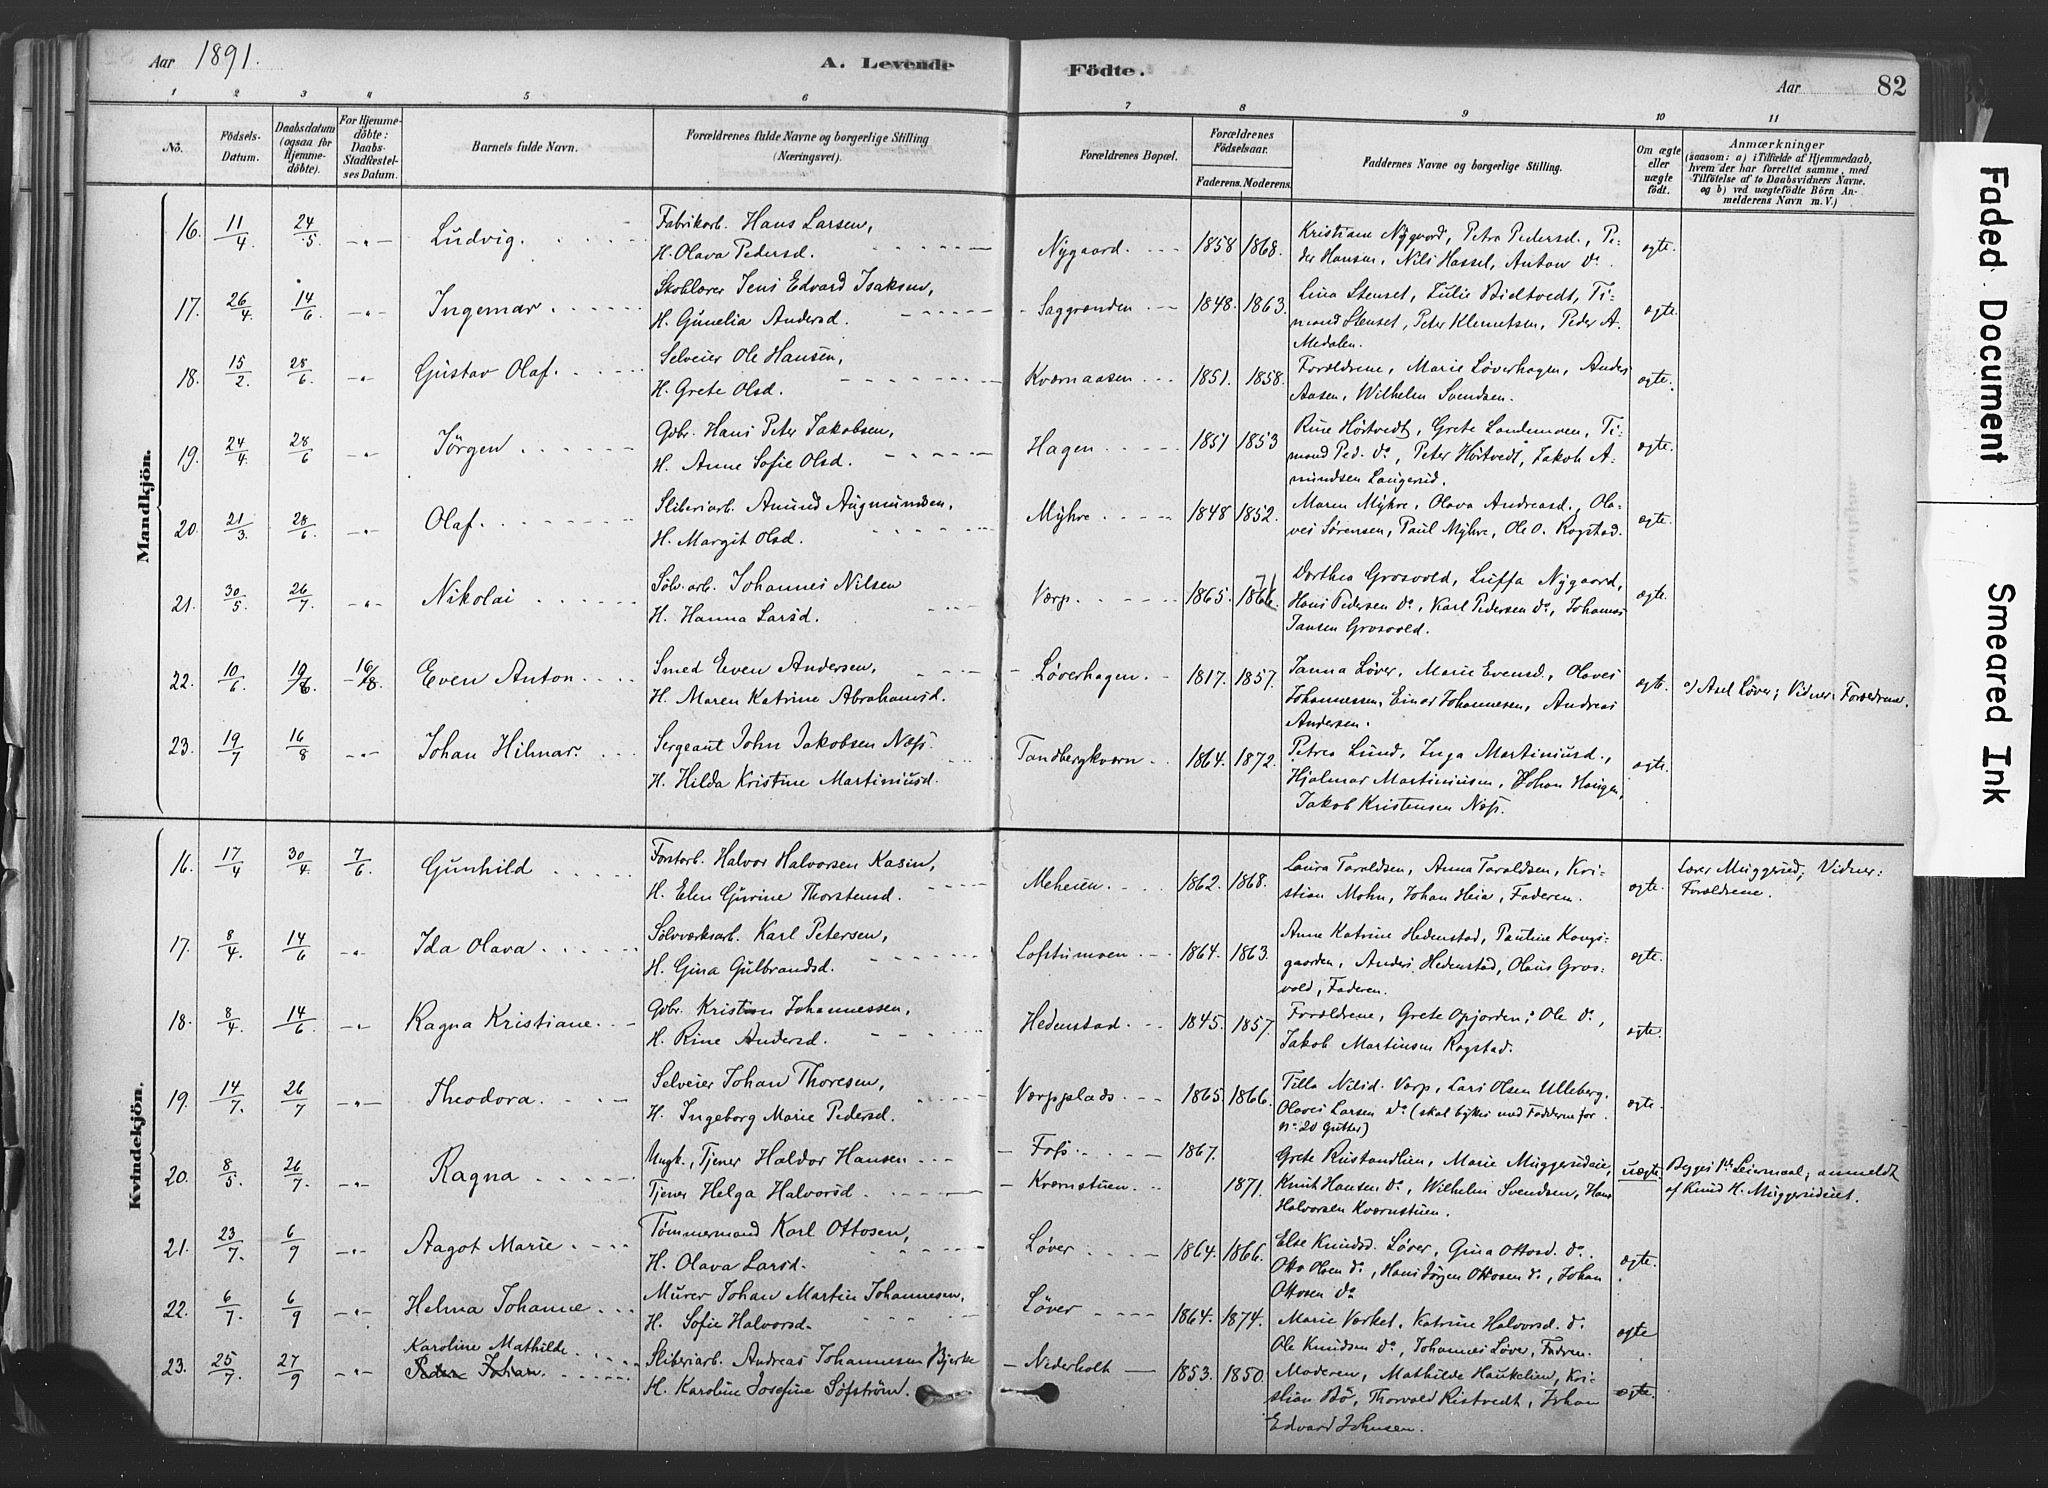 Aar 1891.
A. Levende
Födte.
Aar
82
1 2 3 4 5 6 7 8 9 10 11
No.
Födsels-Datum.
Daabsdatum (ogsaa for Hjemmedöbte).
For Hjemmedöbte: Daabs-Stadfæstelses Datum.
Barnets fulde Navn.
Forældrenes fulde Navne og borgerlige Stilling (Næringsvei).
Forældrenes Bopæl.
Forældrenes Födselsaar.
Faderens. Moderens.
Faddernes Navne og borgerlige Stilling.
Om ægte eller uægte födt.
Anmærkninger
(saasom: a) i Tilfælde af Hjemmedaab, hvem der har forrettet samme, med Tilföielse af to Daabsvidners Navne, og b) ved uægtefödte Börn Anmelderens Navn m. V.)
Mandkjön.
16. 11/4 24/5 -"- Ludvig. Fabrikarb. Hans Larsen, Nygaard. 1858 1868. Kristiane Nygaard, Petra Pedersd., Pe- ægte.
H. Olava Pedersd. der Hansen, Nils Hassel, Anton do.
17. 26/4 14/6 -"- Ingemar. Skolelærer Jens Edvard Isaksen, Saggrenden 1848. 1863. Lina Stenset, Julie Bieltvedt, Ti- ægte.
H. Gunelia Andersd. mand Stenset, Peter Klemetsen, Peder A.
Medalen.
18. 15/2 28/6 -"- Gustav Olaf. Selveier Ole Hansen, Kværnaasen 1851. 1858. Forældrene, Marie Løverhagen, Anders ægte.
H. Grete Olsd. Aasen, Wilhelm Svendsen.
19. 24/4 28/6 -"- Jörgen Gbr. Hans Peter Jakobsen, Hagen 1851 1853 Rine Hörtvedt, Grete Landemoen, Ti- ægte.
H. Anne Sofie Olsd. mand Ped. do, Peter Hörtvedt, Jakob A-
mundsen Langerud.
20. 21/3 28/6 -"- Olaf. Sliberiarb. Amund Augmundsen, Myhre 1848 1852. Maren Myhre, Olava Andreasd., Ola- ægte.
H. Margit Olsd. ves Sørensen, Paul Myhre, Ole O. Rogstad.
21. 30/5 26/7 -"- Nikolai Sölv.arb. Johannes Nilsen Værp. 1865. Dorthea Grosvold, Luffa Nygaard, ægte.
H. Hanna Larsd. Hans Pedersen do, Karl Pedersen do, Johannes
Jansen Grosvold.
22. 10/6 19/6 16/8 Even Anton Smed Even Andersen, Løverhagen 1817. 1857. Janna Løver, Marie Evensd., Olaves ægte. a) Axel Løver; Vidner: Forældrene.
H. Maren Katrine Abrahamsd. Johannessen, Einar Johannesen, Andreas
Andersen.
23. 19/7 16/8 -"- Johan Hilmar. Sergeant John Jakobsen Næss. Tandbergkværn 1864. 1872. Petrea Lund, Inga Martiniusd., ægte.
H. Hilda Kristine Martiniusd. Hjalmar Martiniusen, Johan Haugen,
Jakob Kristensen Næss.
Kvindekjön.
16. 17/4 30/4 7/6 Gunhild Forstarb. Halvor Halvorsen Kasin, Meheien. 1862. 1868. Laura Taraldsen, Anna Taraldsen, Kri- ægte. Lærer Muggerud; Vidner:
H. Elen Gurine Thorstensd. stian Mohn, Johan Heia, Faderen. Forældrene.
17. 8/4 14/6 -"- Ida Olava Sölvværksarb. Karl Petersen, Lofstumoen 1864. 1863. Anne Katrine Hedenstad, Pauline Kongs- ægte.
H. Gina Gulbrandsd. gaarden, Anders Hedenstad, Olaus Gros-
vold, Faderen.
18. 8/4 14/6 -"- Ragna Kristiane. Gbr. Kristian Johannessen, Hedenstad. 1845. 1857. Forældrene, Grete Opjorden; Ole do, ægte.
H. Rine Andersd. Jakob Martinsen Rogstad.
19. 14/7 26/7 -"- Theodora. Selveier Johan Thoresen, Værpplads 1865 1866. Tilla Nilsd. Værp, Lars Olsen Ulleberg. ægte.
H. Ingeborg Marie Pedersd. Olaves Larsen do (skal byttes med Fadderne for
no 20 Gutter)
20. 8/5 26/7 -"- Ragna Ungk., Tjener Haldor Hansen Foss. 1867. Grete Rustandlien, Marie Muggerudeie, uægte. Begges 1ste Leiermaal; anmeldt
Tjener Helga Halvorsd. Kværnstuen. 1871. Knut Hansen do, Wilhelm Svendsen, Hans af Knud H. Muggerudeiet.
Halvorsen Kværnstuen.
21. 23/7 6/9 -"- Aagot Marie Tømmermand Karl Ottosen, Løver 1864. 1866. Else Knudsd. Løver, Gina Ottosd. do. ægte.
H. Olava Larsd. Otto Olsen do, Hans Jørgen Ottosen do, Johan
Ottosen do
22. 6/7 6/9 -"- Helma Johanne Murer Johan Martin Johannesen, Løver 1864. 1874. Marie Værket, Katrine Halvorsd. do. ægte
H. Sofie Halvorsd. Ole Knudsen do, Johannes Løver, Faderen.
Karoline Mathilde.
23. 25/7 27/9 -"- Peder Johan. Sliberiarb. Andreas Johannesen Bjerke Nederholt 1853. 1850. Moderen, Mathilde Haukelien, Kri- ægte.
H. Karoline Josefine Söfström. stian Bö, Thorvald Ristvedt, Johan
Edvard Johnsen.
Faded Document
Smeared Ink